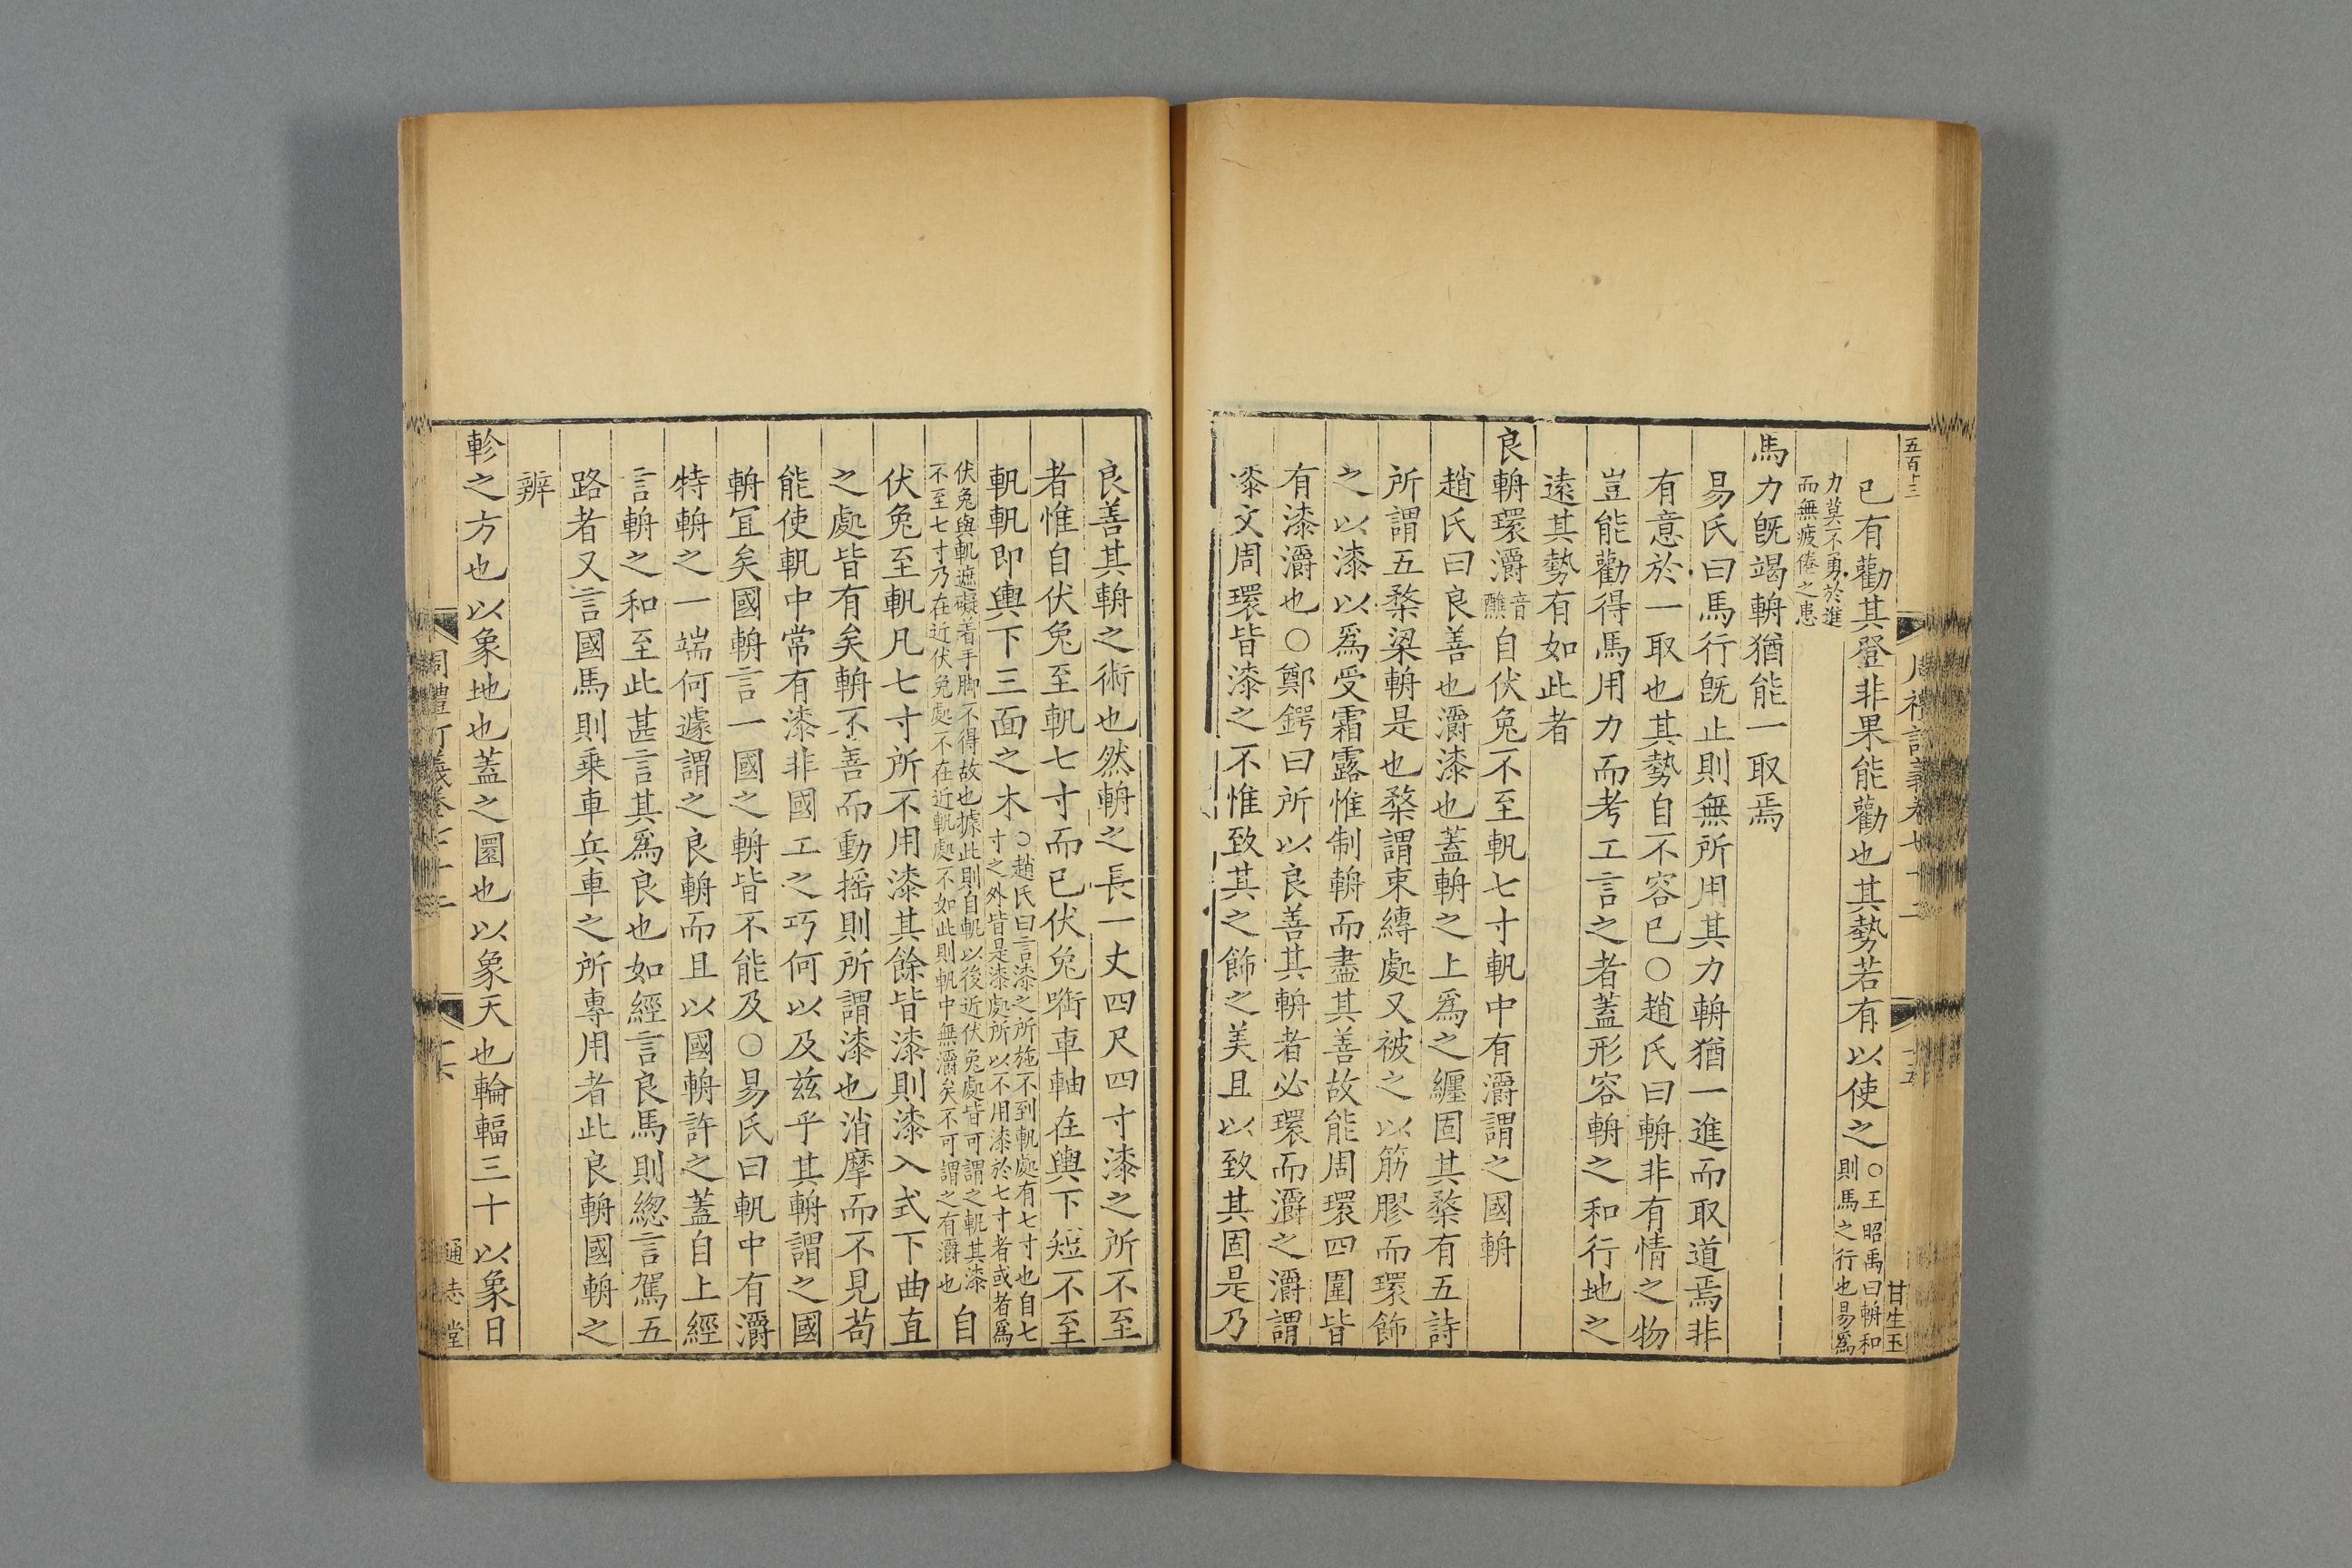 五百十三
周禮訂義卷七十二
十五
甘生玉
已有勸其登非果能勸也其勢若有以使之○王昭禹曰輈和則馬之行也易為
力莫不勇於進而無疲倦之患
馬力旣竭輈猶能一取焉
易氏曰馬行旣止則無所用其力輈猶一進而取道焉非
有意於一取也其勢自不容已○趙氏曰輈非有情之物
豈能勸得馬用力而考工言之者蓋形容輈之和行地之
遠其勢有如此者
良輈環灂音醮自伏兔不至軓七寸軓中有灂謂之國輈
趙氏曰良善也灂漆也蓋輈之上爲之纏固其楘有五詩
所謂五楘梁輈是也楘謂束縳處又被之以筋膠而環飾
之以漆以爲受霜露惟制輈而盡其善故能周環四圍皆
有漆灂也○鄭鍔曰所以良善其輈者必環而灂之灂謂
漆文周環皆漆之不惟致其之飾之美且以致其固是乃
良善其輈之術也然輈之長一丈四尺四寸漆之所不至
者惟自伏兔至軓七寸而已伏兔㗸車軸在輿下短不至
軓軓即輿下三面之木○趙氏曰言漆之所施不到軓處有七寸也自七寸之外皆是漆處所以不用漆於七寸者或者爲
伏兔與軓遮礙着手脚不得故也據此則自軓以後近伏兔處皆可謂之軓其漆不至七寸乃在近伏兔處不在近軓處不如此則軓中無灂矣不可謂之有灂也自
伏兔至軓凡七寸所不用漆其餘皆漆則漆入式下曲直
之處皆有矣輈不善而動摇則所謂漆也消摩而不見苟
能使軓中常有漆非國工之巧何以及兹乎其輈謂之國
輈冝矣國輈言一國之輈皆不能及○易氏曰軓中有灂
特輈之一端何遽謂之良輈而且以國輈許之蓋自上經
言輈之和至此甚言其爲良也如經言良馬則緫言駕五
路者又言國馬則乗車兵車之所專用者此良輈國輈之
辨
軫之方也以象地也蓋之圜也以象天也輪輻三十以象日
周禮訂義卷七十二
十六
通志堂